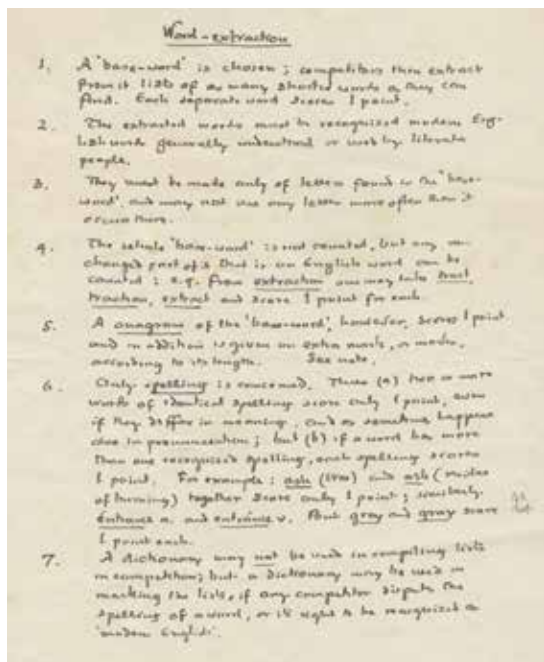 Word-extraction
1. A 'base-word' is chosen; competitors then extract
from it lists of as many shorter words as they can
find. Each separate word scores 1 point.
2. The extracted words must be recognized modern Eng-
lish words generally understood or used by literate
people.
3. They must be made only of letters found in the 'base-
word', and may not use any letter more often than it
occurs there.
4. The whole 'base-word' is not counted, but any un-
changed part of it that is an English word can be
counted: e.g. from extraction one may take tract,
traction, extract and score 1 point for each.
5. A anagram of the 'base-word', however, scores 1 point
and in addition is given an extra mark, or marks,
according to its length. See note.
6. Only spelling is concerned. Thus (a) two or more
words of identical spelling score only 1 point, even
if they differ in meaning, and as sometimes happens
also in pronunciation; but (b) if a word has more
than one recognized spelling, each spelling scores
1 point. For example: ash (tree) and ash (residue
of burning) together score only 1 point; similarly
entrance n. and entrance v. But grey and gray score
1 point each.
7. A dictionary may not be used in compiling lists
in competition; but a dictionary may be used in
marking the lists, if any competitor disputes the
spelling of a word, or its right to be recognized as
'modern English'.